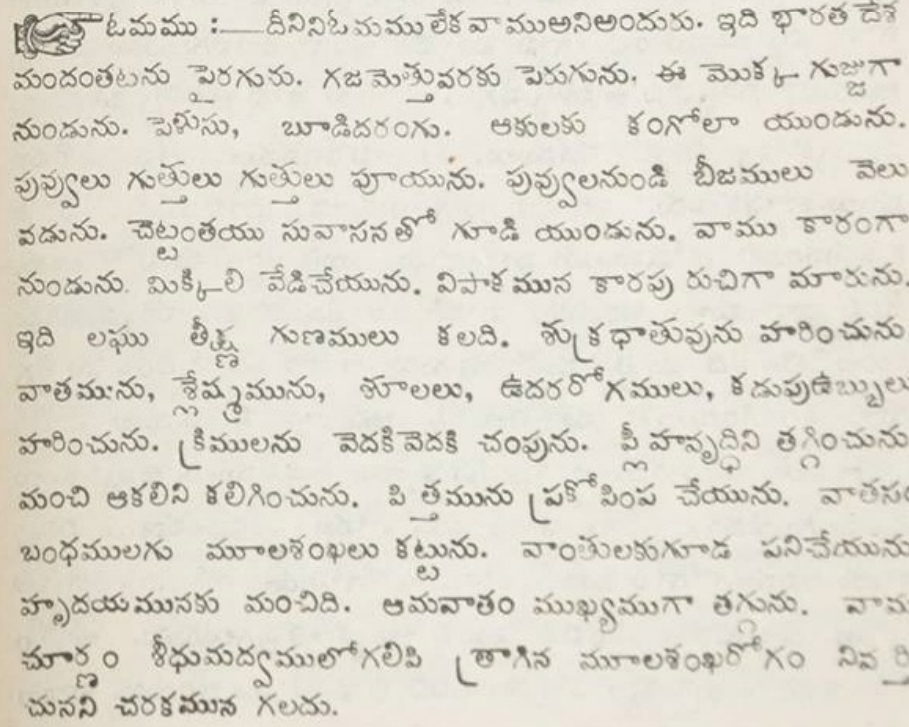 ఓమము :—దీనినిఓమములేకవాముఅనిఅందురు. ఇది భారత దేశ
మందంతటను పైరగురు. గజమెత్తువరకు పెరుగును. ఈ మొక్క గుజ్జుగా
నుండును. పెళుసు, బూడిదరంగు. ఆకులకు కంగోలా యుండును.
పువ్వులు గుత్తులు గుత్తులు పూయును. పువ్వులనుండి బీజములు వెలు
వడును. చెట్టంతయు సువాసనతో గూడి యుండును. వాము కారంగా
నుండును. మిక్కిలి వేడిచేయును. విపాకమున కారపు రుచిగా మారును.
ఇది లఘు తీక్ష్ణ గుణములు కలది. శుక్రధాతువును హరించును
వాతమును, శ్లేష్మమును, శూలలు, ఉదరరోగములు, కడుపుఉబ్బులు
హరించును. క్రిములను వెదకివెదకి చంపును. ప్లీహవృద్ధిని తగ్గించును
మంచి ఆకలిని కలిగించును. పిత్తమును ప్రకోపింప చేయును. వాతసం
బంధములగు మూలశంఖలు కట్టును. వాంతులకుగూడ పనిచేయును
హృదయమునకు మంచిది. ఆమవాతం ముఖ్యముగా తగ్గును. వామ
చూర్ణం శీధుమద్యములోగలిపి త్రాగిన మూలశంఖరోగం నివర్తి
చునని చరకమున గలదు.